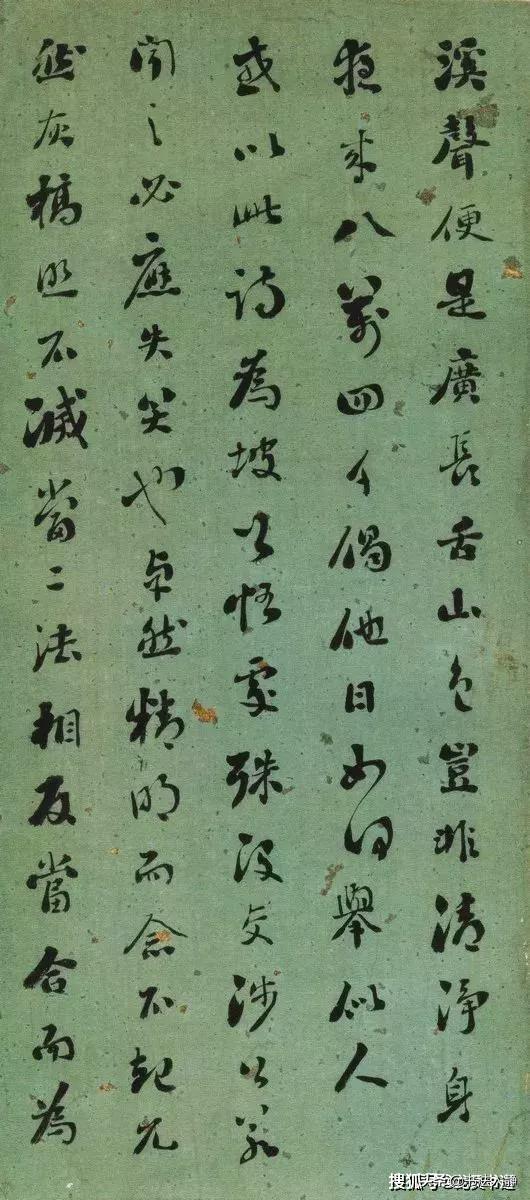 溪聲便是廣長舌山色豈非清淨身
夜來八萬四千偈他日如何舉似人
或以此詩為坡公悟處殊沒交涉公若
聞之必應失笑也卓然精明而念不起兀
然灰槁照不滅當二法相反當合而為
搜狐号